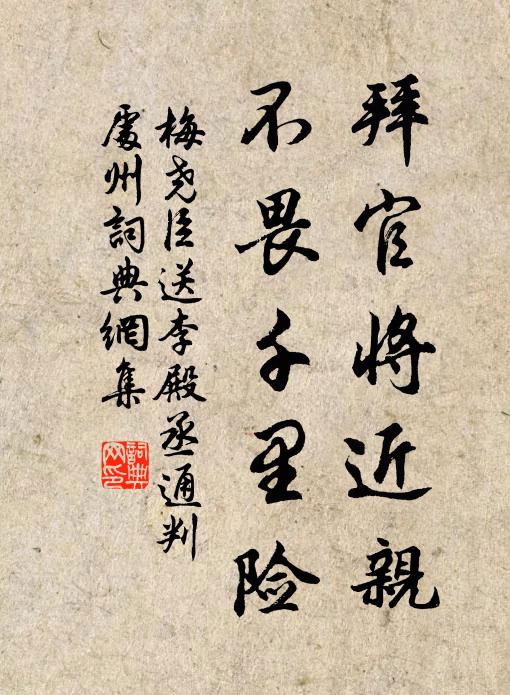 拜官将近親
不畏千里险
梅尧臣送李殿丞通判
處州詞典網集
詞典
网印